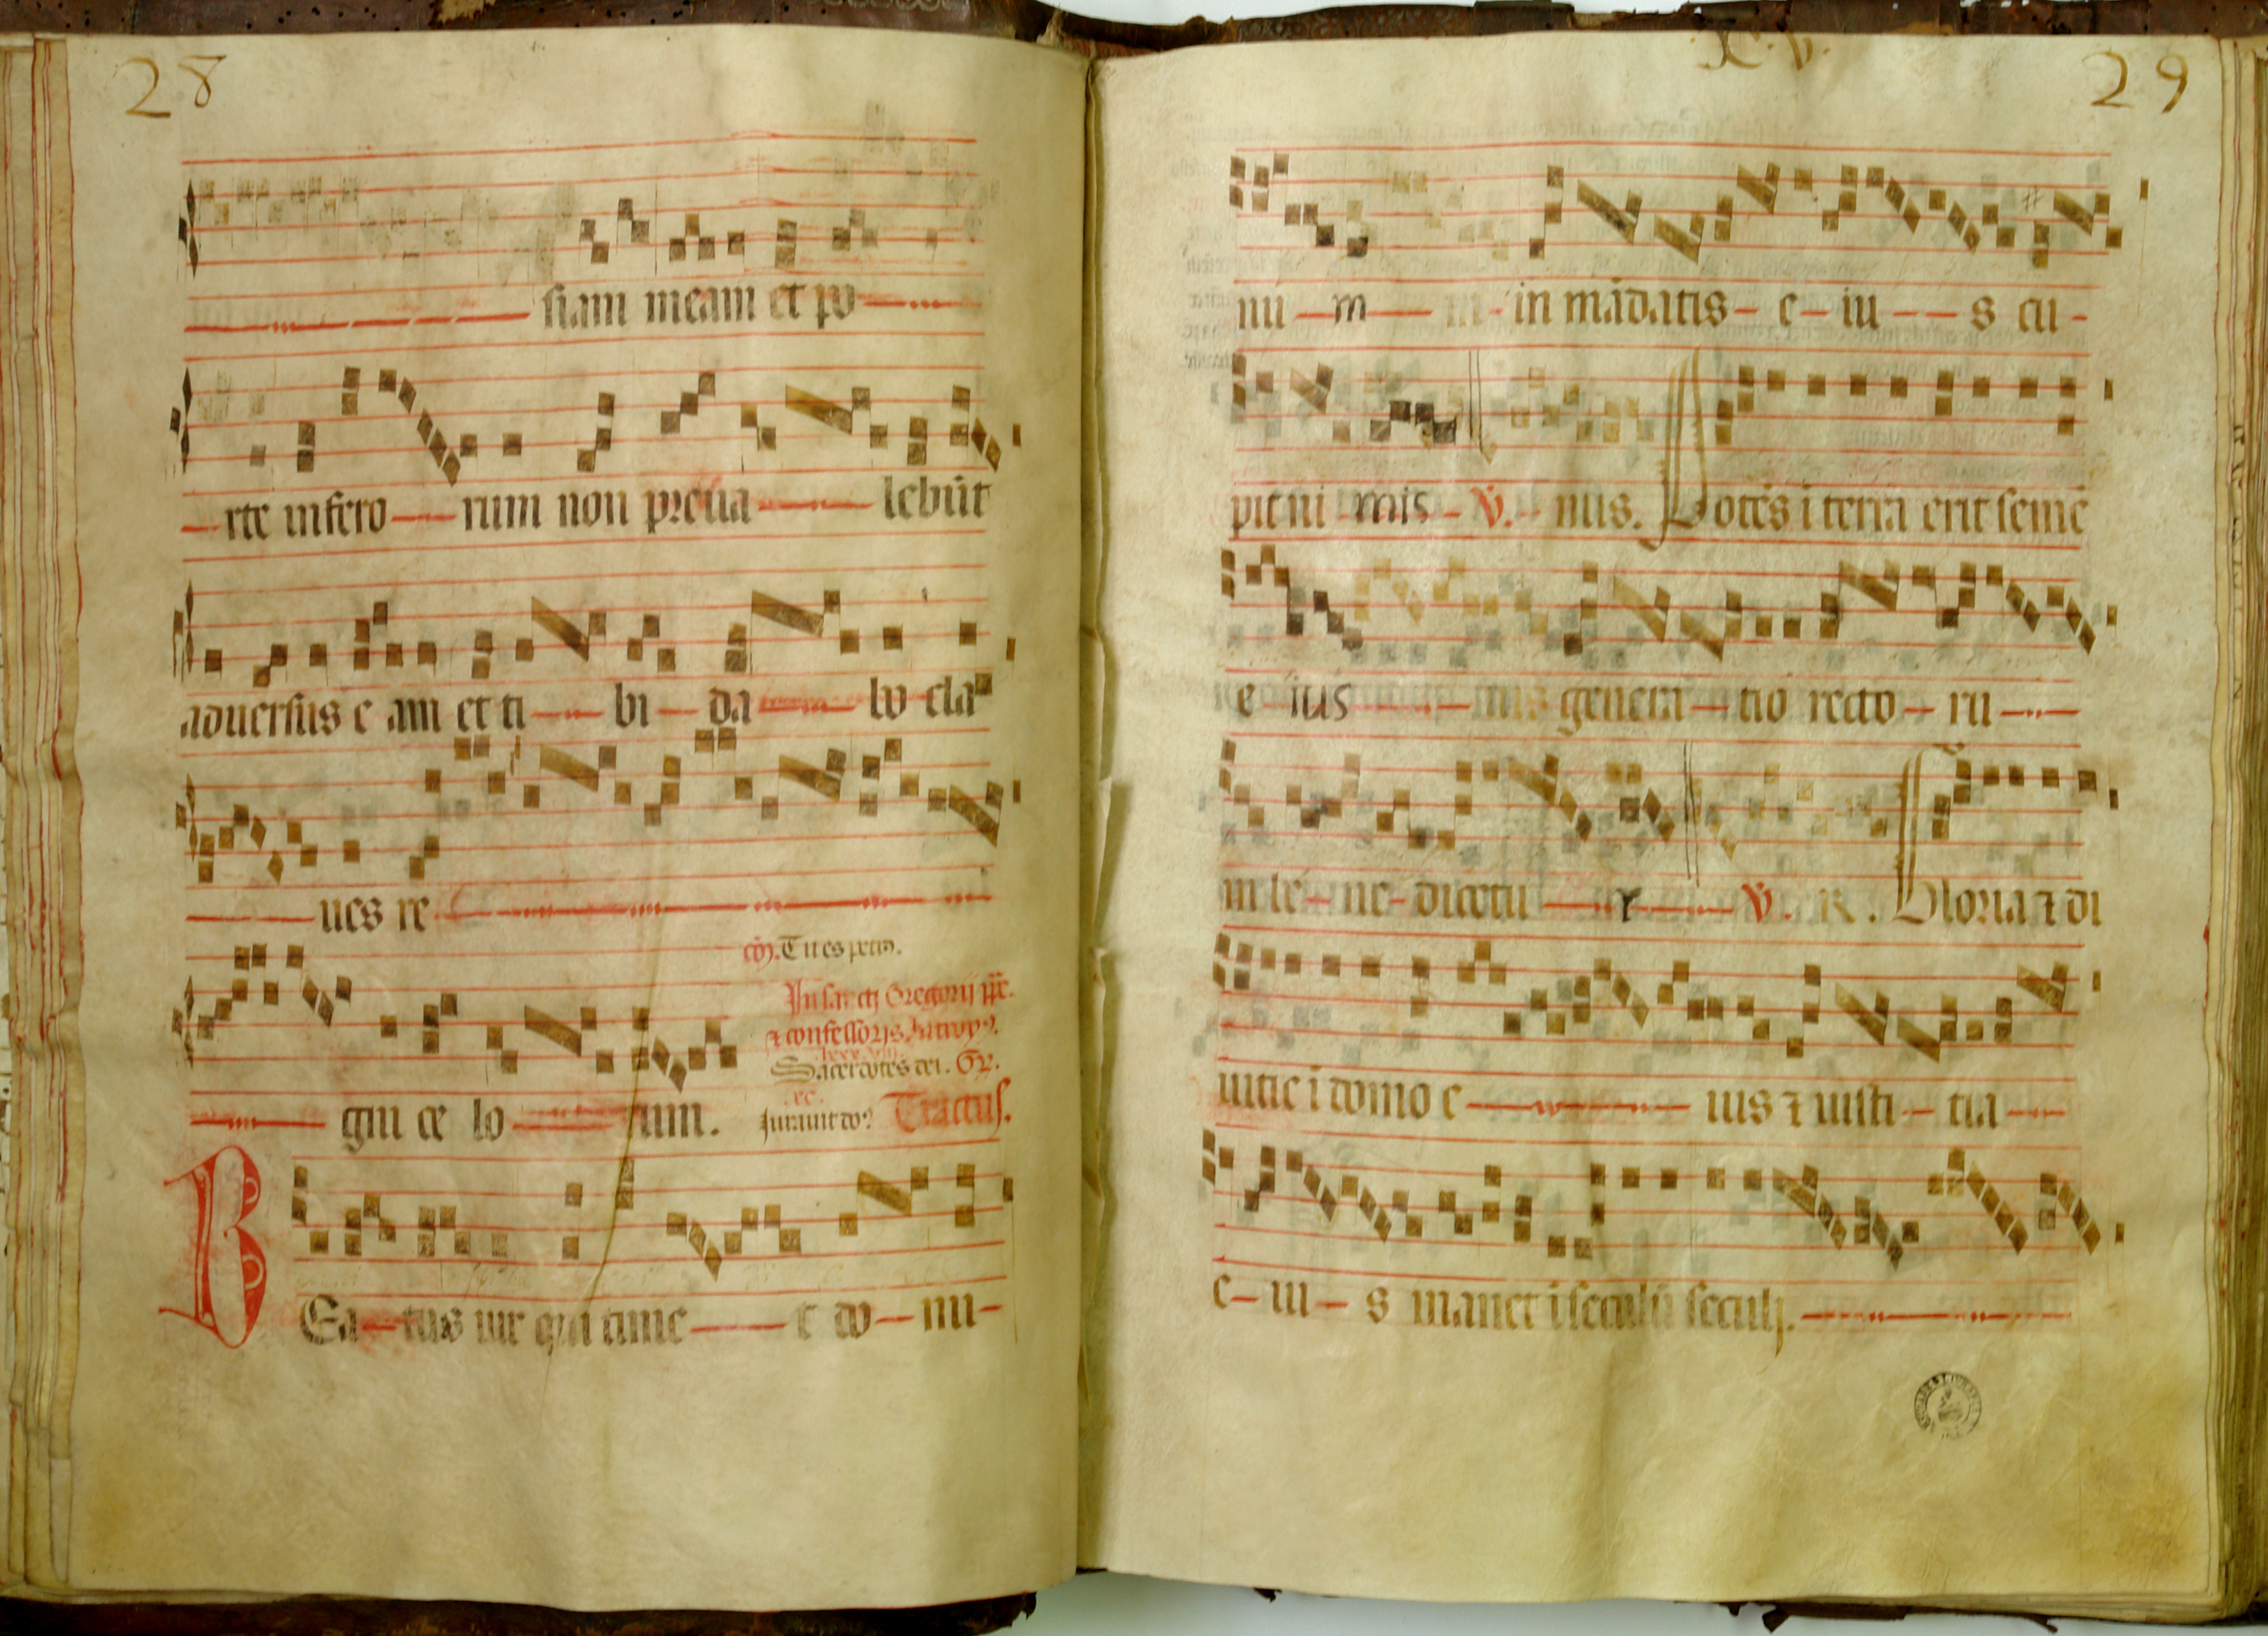 28
siam meam et po
rte infero rum non preua lebūt
aduersus e am et ti bi da bo cla
ues re
cō. Tu es petrꝰ.
In sancti Gregorij pp̄.
⁊ confessoris. Introyꝰ.
lxxx
Sacerdotes dei. Gr̄.
xc.
gni ce lo rum. Jurauit doꝰ Tractus.
BEa tus uir qui time t do mi
x.v. 29
nū m in mādatis e iu s cu
pit ni mis v̄. mus. Potēs ī terra erit semē
e ius mis genera tio recto ru
m be ne dicetu r v̄. R. Gloria ⁊ di
uitie ī domo e ius ⁊ iusti tia
e iu s manet ī seculū seculj.